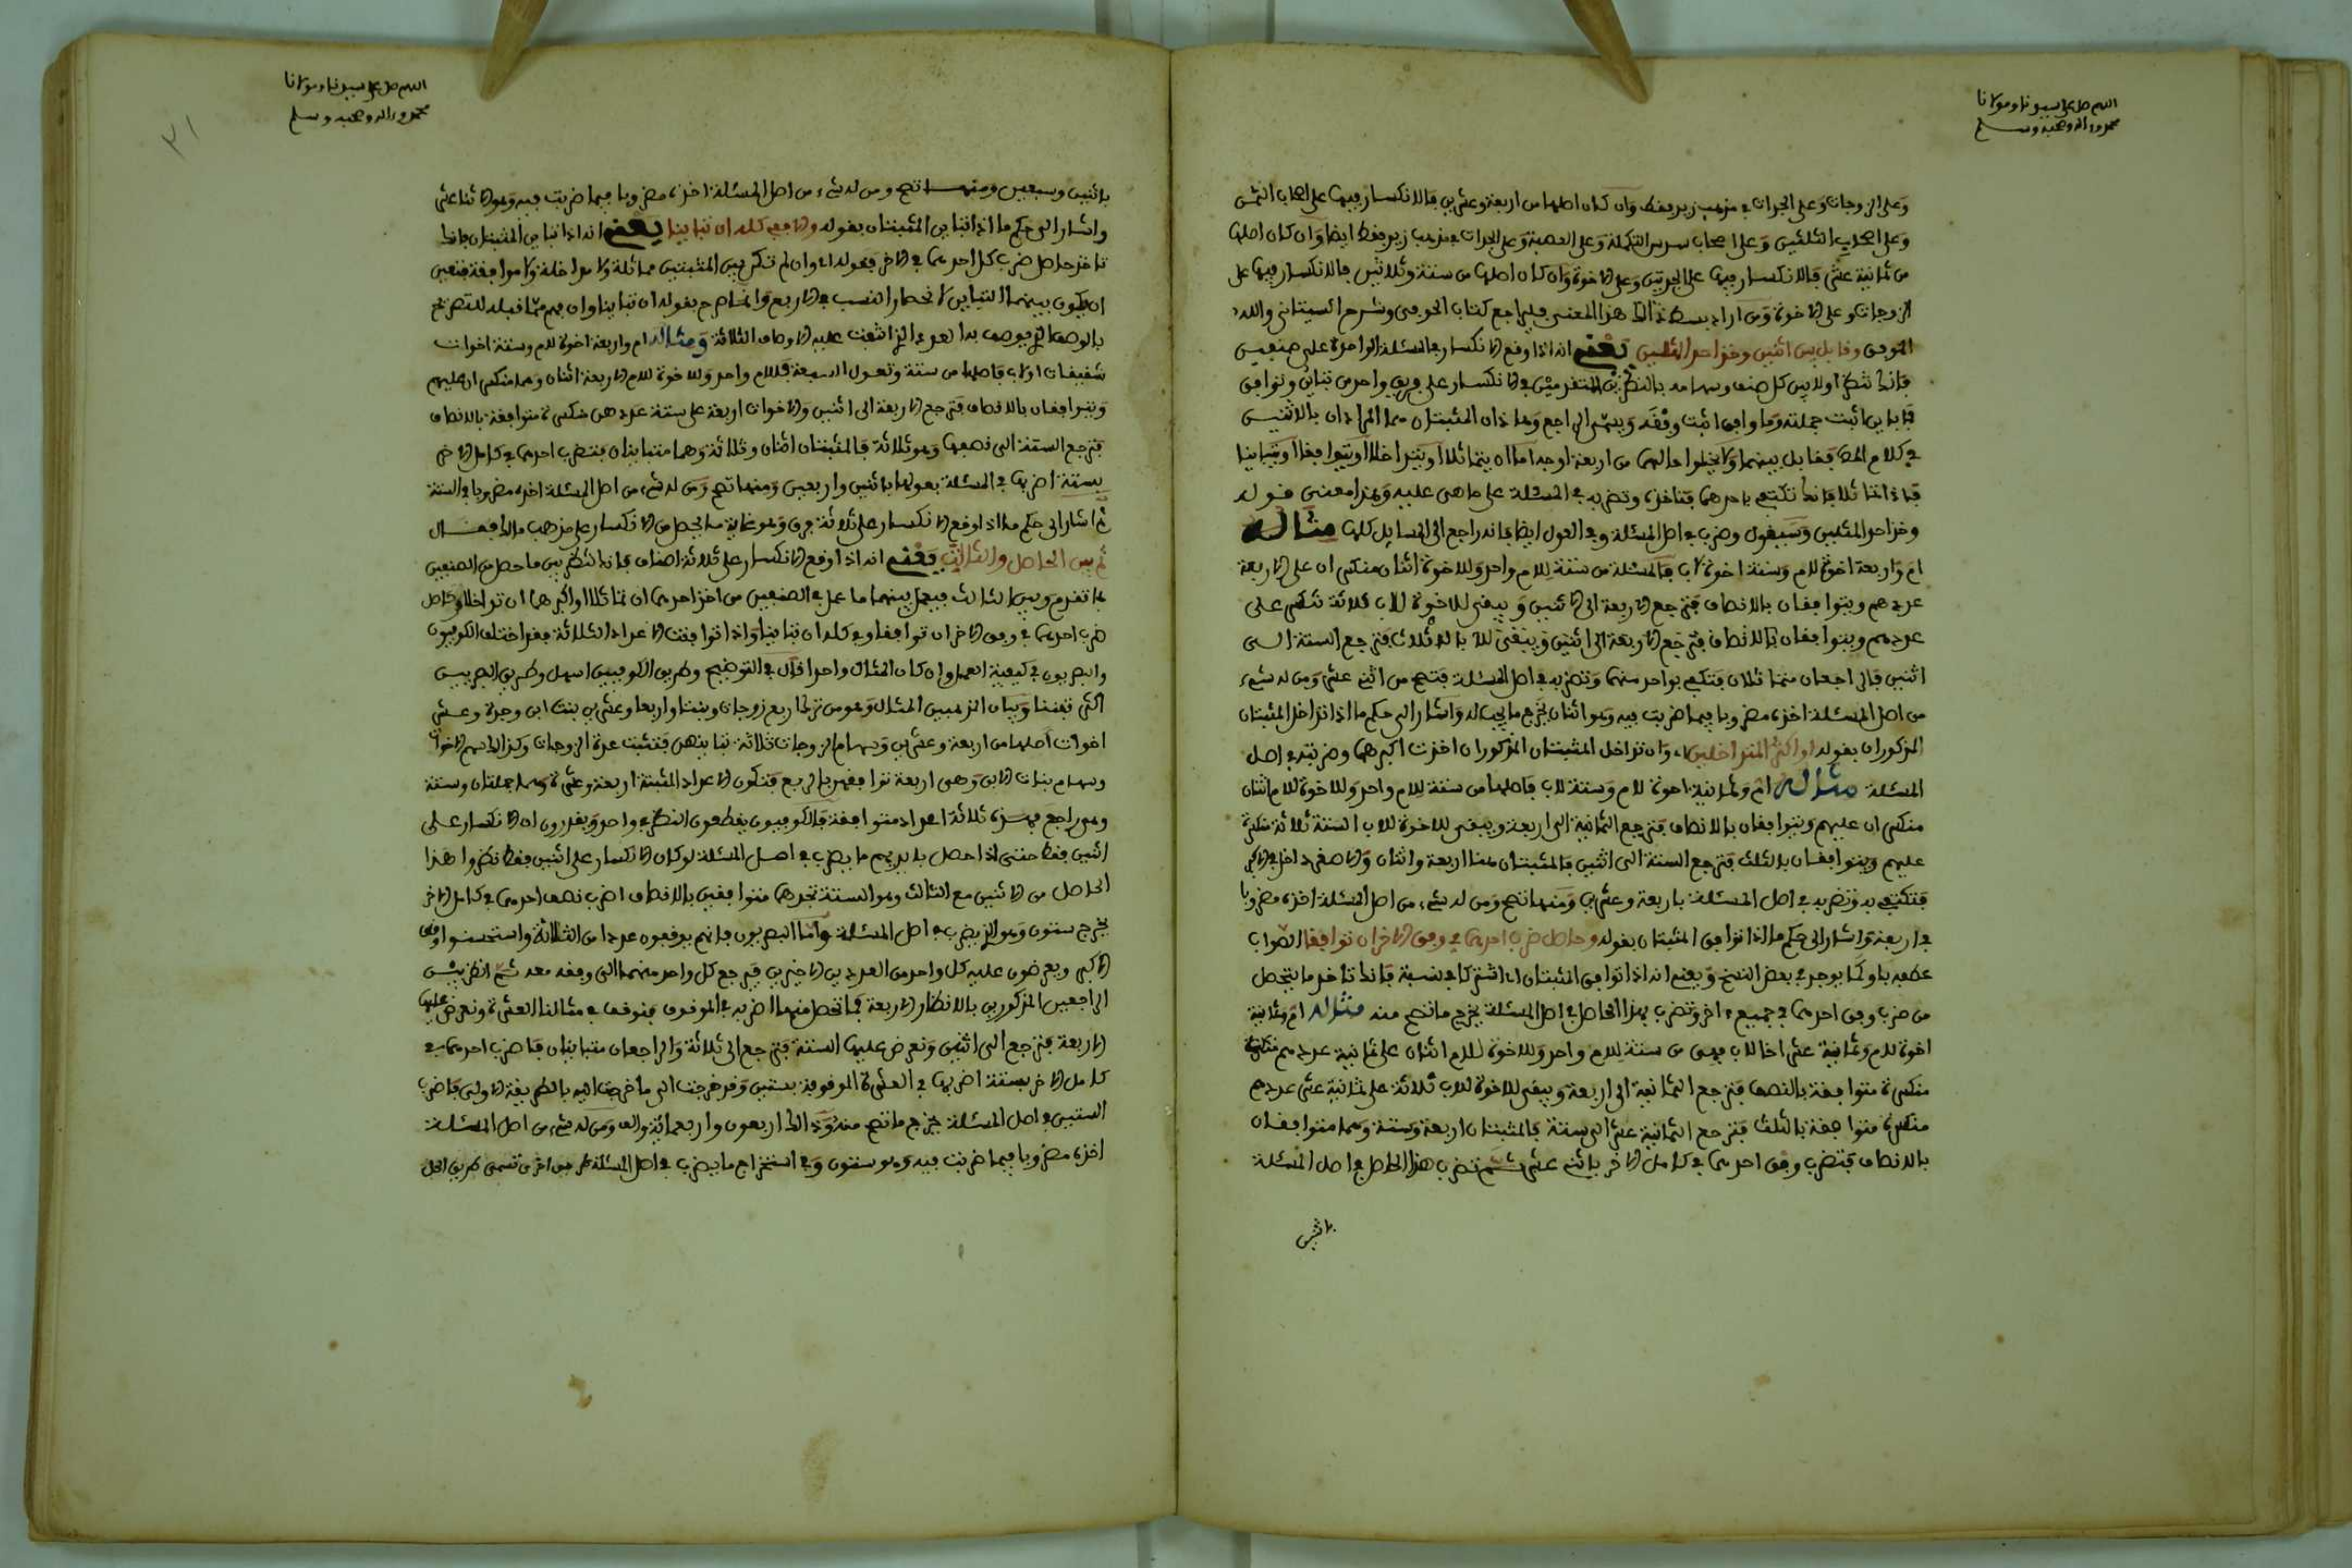 اللهم صل على سيدنا ومولانا
محمد واله وصحبه وسلم
وعلى الزوجات وعلى الجدات في مذهب زيد فقط وان كان اصلها من اربعة وعشرين فالانكسار فيها على اصحاب الثمن
وعلى اصحاب الثلثين وعلى اصحاب سدس التكملة وعلى العصبة وعلى الجدات في مذهب زيد فقط ايضا وان كان اصلها
من ثمانية عشر فالانكسار فيها على الجدتين وعلى الاخوة وان كان اصلها من ستة وثلاثين فالانكسار فيها على
الزوجات وعلى الاخوة ومن اراد بسط ذالك هذا المعنى فليراجع كتاب الحوفي وشرح السيتاني والله
الموفق وقابل بين اثنين وخذ احد المثلين يعني انه اذا وقع الانكسار في المسئلة الواحدة على صنفين
فانك تنظر اولا بين كل صنف وسهامه بالنظرين المتقدمين في الانكسار على فريق واحد من تباين وتوافق
فما باين اثبت جملته وما وافق اثبت وفقه ويسمى الراجع وهاذان المثبتان هما المرادان بالاثنين
في كلام المص فقابل بينهما ولا يخلوا حالهما من اربعة اوجه اما ان يتماثلا او يتداخلا او يتوافقا او يتباينا
فاذا تماثلا فانك تكتفي باحدهما فتاخذه وتضربه في المسئلة على ما هي عليه وهذا معنى قوله
وخذ احد المثلين وسيقول وضرب في اصل المسئلة وفي العول ايضا فانه راجع الى المسايل كلها مثاله
ام واربعة اخوة للام وستة اخوة لاب فالمسئلة من ستة للام واحد وللاخوة اثنان منكسران على الاربعة
عددهم ويتوافقان بالانصاف فترجع الاربعة الى الاثنين ويبقى للاخوة للاب ثلاثة تنكسر على
عددهم ويتوافقان بالانصاف فترجع الاربعة الى اثنين ويتفقى للا بالاثلاث فترجع الستة الى
اثنين فالراجعان متماثلان فتكتفي بواحد منهما وتضربه في اصل المسئلة فتصح من اثني عشر ومن له شيء
من اصل المسئلة اخذه مضروبا فيما ضربت فيه وهو اثنان يخرج ما يجب له واشار الى حكم ما اذا تداخل المثبتان
المذكوران بقوله او اكثر المتداخلين، وان تداخل المثبتان المذكوران اخذت اكبرهما وضربته في اصل
المسئلة مثاله ام وثمانية اخوة للام وستة للاب فاصلها من ستة للام واحد وللاخوة للام اثنان
منكسران عليهم ويتوافقان بالانصاف فترجع الثمانية الى اربعة ويبقى للاخوة للاب الستة ثلاثة منكسرة
عليهم ويتوافقان بالثلث فترجع الستة الى اثنين فالمثبتان هنا اربعة واثنان والاصغر داخل في الاكبر
فتكتفي به وتضربه في اصل المسئلة باربعة وعشرين ومنها تصح ومن له شيء من اصل المسئلة اخذه مضروبا
في اربعة واشار الى حكم ما اذا توافق المثبتان بقوله وحاصل ضرب احدهما في وفق الاخر ان توافقا الصواب
عطفه باو كما يوجد في بعض النسخ ويعني انه اذا توافق المثبتان اي اشتركا في نسبة فانك تاخذ ما يتحصل
من ضرب وفق احدهما في جميع الاخر وتضرب هذا الحاصل في اصل المسئلة يخرج ما تصح منه مثاله ام وثمانية
اخوة للام وثمانية عشر اخا للاب فهي من ستة للام واحد وللاخوة للام اثنان على ثمانية عددهم
منكسرة متوافقة بالنصف فترجع الثمانية الى اربعة ويبقى للاخوة للاب ثلاثة على ثمانية عشر عددهم
منكسرة متوافقة بالثلث فترجع الثمانية عشر الى ستة فالمثبتان اربعة وستة وهما متوافقان
بالانصاف فتضرب وفق احدهما في كامل الاخر باثني عشر ثم تضرب هذا الحاصل في اصل المسئلة
باثنين
اللهم صل على سيدنا ومولانا
محمد واله وصحبه وسلم
٣١
باثنين وسبعين ومنها تصح ومن له شيء من اصل المسئلة اخذه مضروبا فيما ضربت فيه وهو الاثنا عشر
واشار الى حكم ما اذا تباين المثبتان بقوله والا ففي كله ان تباينا يعني انه اذا تباين المثبتان فانك
تاخذ حاصل ضرب كل احدهما في الاخر فقوله الا وان لم تكن بين المثبتين مماثلة ولا مداخلة ولا موافقة فتعين
ان يكون بينهما التباين لانحصار النسب في الاربع وانما صرح بقوله ان تباينا وان فهم مما قبله للتصريح
بالوصف الذي يوصف به العدد الذي انتفت عليه الاوصاف الثلاثة ومثاله ام واربعة اخوة للام وستة اخوات
شقيقات او لاب فاصلها من ستة وتعول السبعة فللام واحد وللاخوة للام الاربعة اثنان وهما منكسران عليهم
ويتوافقان بالانصاف فترجع الاربعة الى اثنين والاخوات اربعة على ستة عددهن منكسرة متوافقة بالانصاف
فترجع الستة الى نصفها وهو ثلاثة فالمثبتان اثنان وثلاثة وهما متباينان فتضرب احدهما في كامل الاخر
بستة اضربها في المسئلة بعولها باثنين واربعين ومنها تصح ومن له شيء من اصل المسئلة اخذه مضروبا في الستة
ثم اشار الى حكم ما اذا وقع الانكسار على ثلاثة فرق وهو غاية ما يحصل من الانكسار على مذهب مالك فقال
ثم بين الحاصل والثالث يعني انه اذا وقع الانكسار على ثلاثة اصناف فانك تنظر بين ما حصل من الصنفين
بما تقدم وبين الثالث فيعمل بينهما ما عمل في الصنفين من اخذ احدهما ان تماثلا او اكبرهما ان تداخلا وحاصل
ضرب احدهما في وفق الاخر ان توافقا وفي كله ان تباينا واذا توافقت الاعداد الثلاثة فقد اختلف الكوفيون
والبصريون في كيفية العمل وان كان المئال واحدا قال في التوضيح وطريق الكوفيين اسهل وطريق البصريين
اكثر تفننا وبيان المذهبين المثال وهو من ترك اربع زوجات وبنتا واربعا وعشرين بنت ابن وجدة وعشر
اخوات اصلها من اربعة وعشرين وسهام الزوجات ثلاثة تباينهن فتثبت عدة الزوجات وكذالك سهم الاخوات
وسهام بنات الابن وهي اربعة توافقهن بالربع فتكون الاعداد المثبتة اربعة وعشرة وهما جملتان وستة
وهو راجع فهذه ثلاثة اعداد متوافقة فالكوفيون يقطعون النظر في واحد ويقدرون ان الانكسار على
اثنين فقط حتى اذا حصل بايديهم ما يضرب في اصل المسئلة لو كان الانكسار على اثنين فقط نظروا هذا
الحاصل من الاثنين مع الثالث وهو الستة تجدهما متوافقين بالانصاف اضرب نصف احدهما في كامل الاخر
يخرج ستون وهو الذي يضرب في اصل المسئلة واما البصريون فانهم يوقفون عددا من الثلاثة واستحسنوا وقف
الاكبر ويعرضون عليه كل واحد من العددين الاخيرين فيرجع كل واحد منهما الى وفقه معه ثم انظر بين
الراجعين المذكورين بالانظار الاربعة فما تحصل منهما اضربه في الموقوف فنوقف في مثالنا العشرة ونعرض عليها
الاربعة فترجع الى اثنين ونعرض عليها الستة فترجع الى ثلاثة والراجعان متباينان فاضرب احدهما في
كامل الاخر بستة اضربها في العشرة الموقوفة بستين وقد خرجت الى ما خرجت اليه بالطريقة الاولى فاضرب
الستين في اصل المسئلة يخرج ما تصح منه وذالك اربعون واربعمائة والف ومن له شيء من اصل المسئلة
اخذه مضروبا فيما ضربت فيه وهو ستون وفي استخراج ما يضرب في اصل المسئلة طريق اخرى تسمى طريق الحل